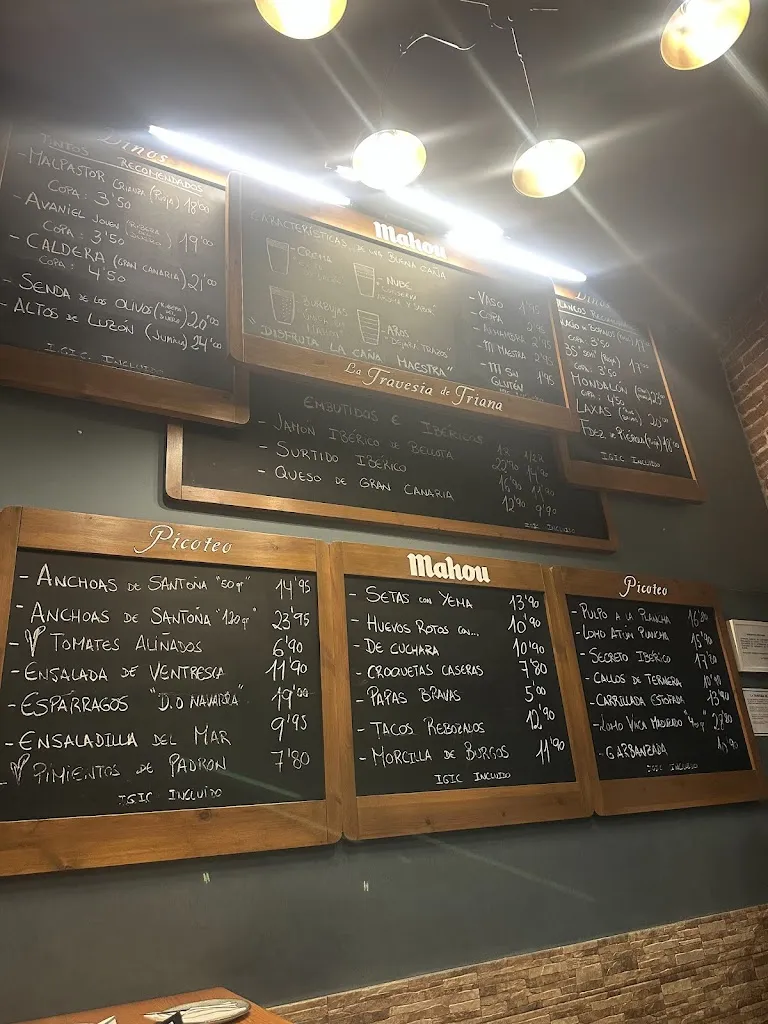 Vinos
TINTOS RECOMENDADOS
- MALPASTOR CRIANZA (Rioja) 18'00
COPA: 3'50
- AVANIEL JOVEN (RIBERA DEL DUERO) 19'00
COPA: 3'50
- CALDERA (GRAN CANARIA) 21'00
COPA: 4'50
- SENDA DE LOS OLIVOS (RIBERA DEL DUERO) 20'00
- ALTOS DE LUZÓN (JUMILLA) 24'00
IGIC INCLUIDO
Mahou
CARACTERÍSTICAS DE UNA BUENA CAÑA
- CREMA
- NUBE
- BURBUJAS
- AROS
"DEJARA TRAZOS"
"DISFRUTA LA CAÑA MAESTRA"
- VASO 1'95
- COPA
- ALHAMBRA
- MAESTRA
- SIN GLUTÉN 1'95
La Travesía de Triana
Vinos
BLANCOS RECOMENDADOS
COPA 3'50
COPA 3'50
MONDALÓN
COPA: 4'50
LAXAS 20'00
FDEZ DE PIEROLA (Rioja) 18'00
IGIC INCLUIDO
EMBUTIDOS E IBÉRICOS
- JAMON IBÉRICO DE BELLOTA
- SURTIDO IBÉRICO
- QUESO DE GRAN CANARIA 12'90 9'90
IGIC INCLUIDO
Picoteo
- ANCHOAS DE SANTOÑA "50 gr" 14'95
- ANCHOAS DE SANTOÑA "120 gr" 23'95
- TOMATES ALIÑADOS 6'90
- ENSALADA DE VENTRESCA 11'90
- ESPÁRRAGOS "D.O NAVARRA" 19'00
- ENSALADILLA DEL MAR 9'95
- PIMIENTOS DE PADRON 7'80
IGIC INCLUIDO
Mahou
- SETAS CON YEMA 13'90
- HUEVOS ROTOS CON... 10'90
- DE CUCHARA 10'90
- CROQUETAS CASERAS 7'80
- PAPAS BRAVAS 5'00
- TACOS REBOZADOS 12'90
- MORCILLA DE BURGOS 11'90
IGIC INCLUIDO
Picoteo
- PULPO A LA PLANCHA
- LOMO ATÚN PLANCHA 15'90
- SECRETO IBÉRICO
- CALLOS DE TERNERA 10'90
- CARRILLADA ESTOFADA 13'90
- LOMO VACA MADURADO
- GARBANZADA
IGIC INCLUIDO